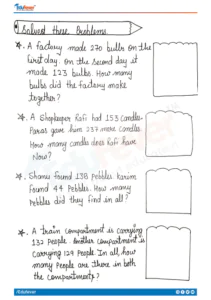 Solved these Problems.
*. A factory made 270 bulbs on the
first day. On the second day it
made 123 bulbs. How many
bulbs did the factory make
together?
*. A Shopkeeper Rafi had 153 candles.
Paras gave him 237 more candles.
How many candles does Rafi have
Now?
*. Shanu found 138 Pebbles Karim
found 44 Pebbles. How many
Pebbles did they find in all?
*. A train compartment is carrying
132 people. Another compartment is
carrying 129 People. In all, how
many People are there in both
the compartments?